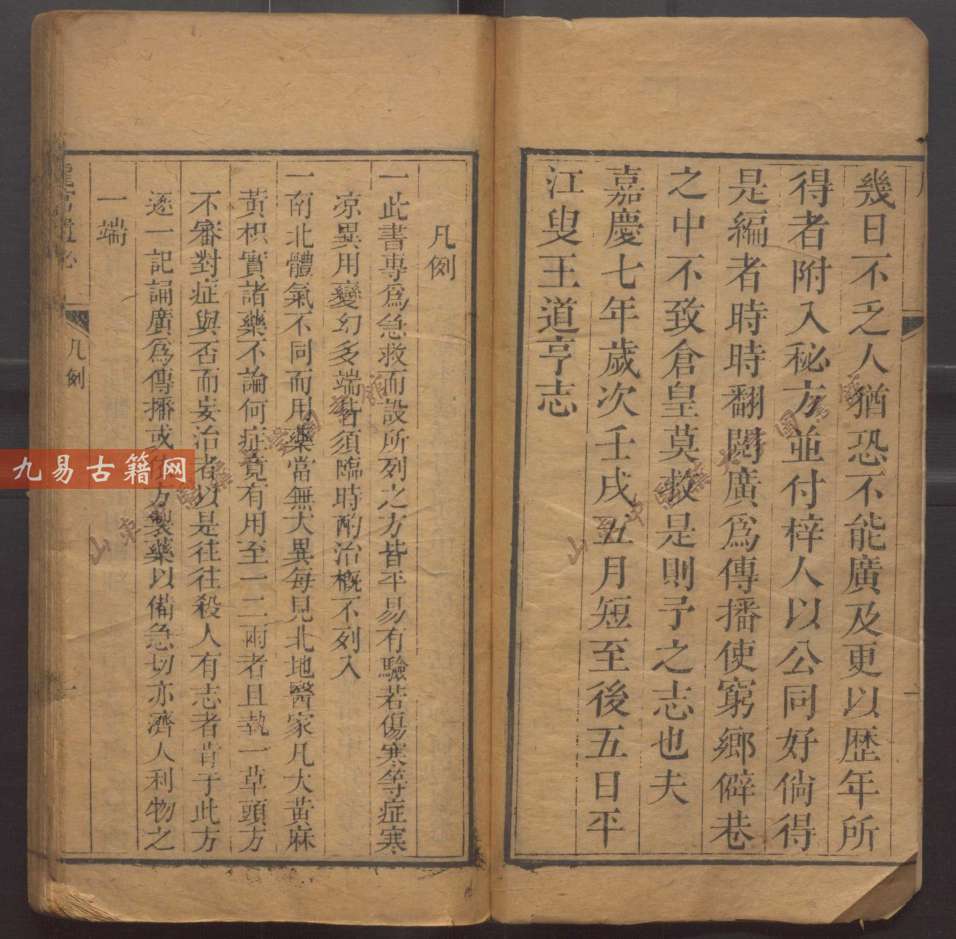 幾日不乏人猶恐不能廣及更以歷年所
得者附入秘方並付梓人以公同好倘得
是編者時時翻閱廣爲傳播使窮鄉僻巷
之中不致倉皇莫救是則予之志也夫
嘉慶七年歲次壬戌五月短至後五日平
江叟王道亨志
凡例
一此書專爲急救而設所列之方皆平易有驗若傷寒等症寒
涼異用變幻多端皆須臨時酌治槪不列入
一南北體氣不同而用藥當無大異每見北地醫家凡大黃麻
黃枳實諸藥不論何症竟有用至一二兩者且執一草頭方
不審對症與否而妄治者以是往往殺人有志者肯于此方
逐一記誦廣爲傳播或依方製藥以備急切亦濟人利物之
一端
凡例
一
九易古籍网